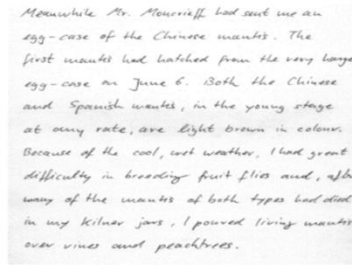 Meanwhile Mr. Moncrieff had sent me an
egg-case of the Chinese mantis. The
first mantis had hatched from the very large
egg-case on June 6. Both the Chinese
and Spanish mantes, in the young stage
at any rate, are light brown in colour.
Because of the cool, wet weather, I had great
difficulty in breeding fruit flies and, after
many of the mantis of both types had died
in my Kilner jars, I poured living mantis
over vines and peachtrees.